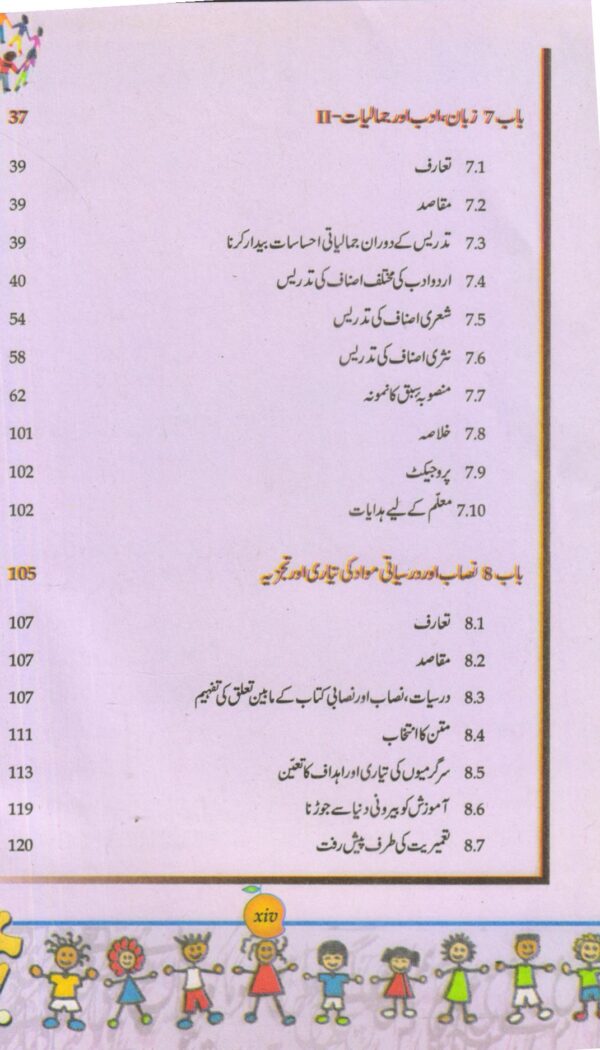 باب 7 زبان، ادب اور جمالیات-II 37
7.1 تعارف 39
7.2 مقاصد 39
7.3 تدریس کے دوران جمالیاتی احساسات بیدار کرنا 39
7.4 اردو ادب کی مختلف اصناف کی تدریس 40
7.5 شعری اصناف کی تدریس 54
7.6 نثری اصناف کی تدریس 58
7.7 منصوبۂ سبق کا نمونہ 62
7.8 خلاصہ 101
7.9 پروجیکٹ 102
7.10 معلّم کے لیے ہدایات 102
باب 8 نصاب اور درسیاتی مواد کی تیاری اور تجزیہ 105
8.1 تعارف 107
8.2 مقاصد 107
8.3 درسیات، نصاب اور نصابی کتاب کے مابین تعلق کی تفہیم 107
8.4 متن کا انتخاب 111
8.5 سرگرمیوں کی تیاری اور اہداف کا تعیّن 113
8.6 آموزش کو بیرونی دنیا سے جوڑنا 119
8.7 تعمیریت کی طرف پیش رفت 120
xiv